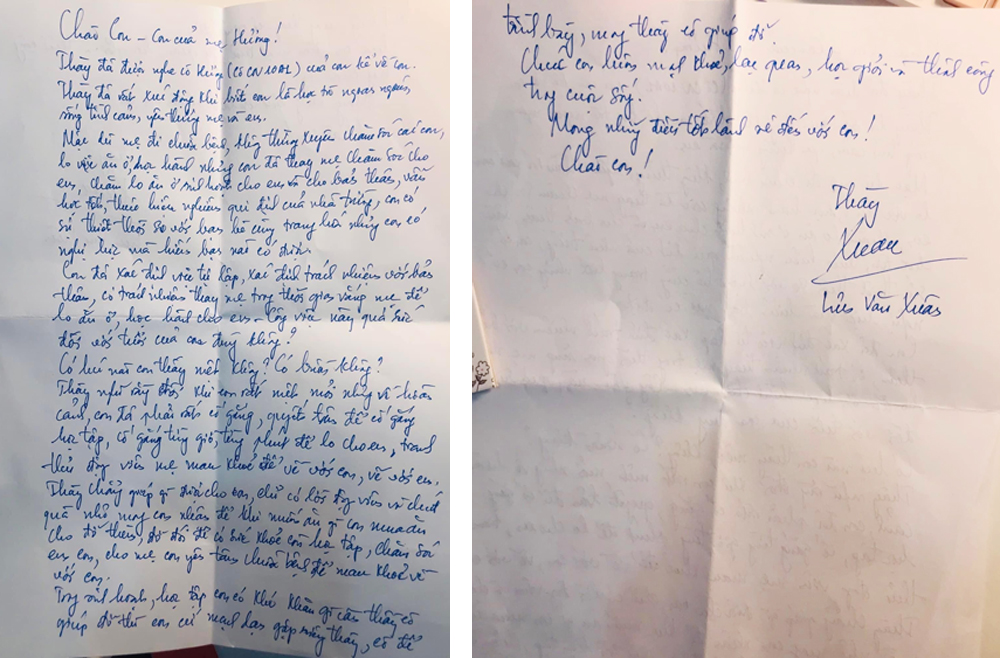 Chào Con – Con của mẹ Hường!
Thầy đã được nghe cô Hường (Cô CN 10A1) của con kể về con.
Thầy đã rất xúc động khi biết con là học trò ngoan ngoãn,
sống tình cảm, yêu thương mẹ và em.
Mặc dù mẹ đi chữa bệnh, không thường xuyên chăm sóc các con,
lo việc ăn ở, học hành nhưng con đã thay mẹ chăm sóc cho
em, chăm lo ăn ở sinh hoạt cho em và cho bản thân, vẫn
học tốt, thực hiện nghiêm qui định của nhà trường, con có
sự thiệt thòi so với bạn bè cùng trang lứa nhưng con có
nghị lực mà hiếm bạn nào có được.
Con đã xác định việc tự lập, xác định trách nhiệm với bản
thân, có trách nhiệm thay mẹ trong thời gian vắng mẹ để
lo ăn ở, học hành cho em – Công việc này quá sức
đối với tuổi của con đúng không?
Có lúc nào con thấy mệt không? Có buồn không?
Thầy nghĩ rằng đôi khi con rất mệt mỏi nhưng vì hoàn
cảnh, con đã phải rất cố gắng, quyết tâm để cố gắng
học tập, cố gắng từng giờ, từng phút để lo cho em, tranh
thủ động viên mẹ mau khoẻ để về với con, về với em.
Thầy chẳng giúp gì được cho con, chỉ có lời động viên và chút
quà nhỏ mong con nhận để khi muốn ăn gì con mua ăn
cho đỡ thèm, để có sức khoẻ còn học tập, chăm sóc
em con, cho mẹ con yên tâm chữa bệnh để mau khoẻ về
với con.
Trong sinh hoạt, học tập con có khó khăn gì cần thầy cô
giúp đỡ thì con cứ mạnh dạn gặp riêng thầy, cô để
trình bày, mong thầy cô giúp đỡ.
Chúc con luôn mạnh khoẻ, lạc quan, học giỏi và thành công
trong cuộc sống.
Mong những điều tốt lành sẽ đến với con!
Chào con!
Thầy
Xuân
Lưu Văn Xuân